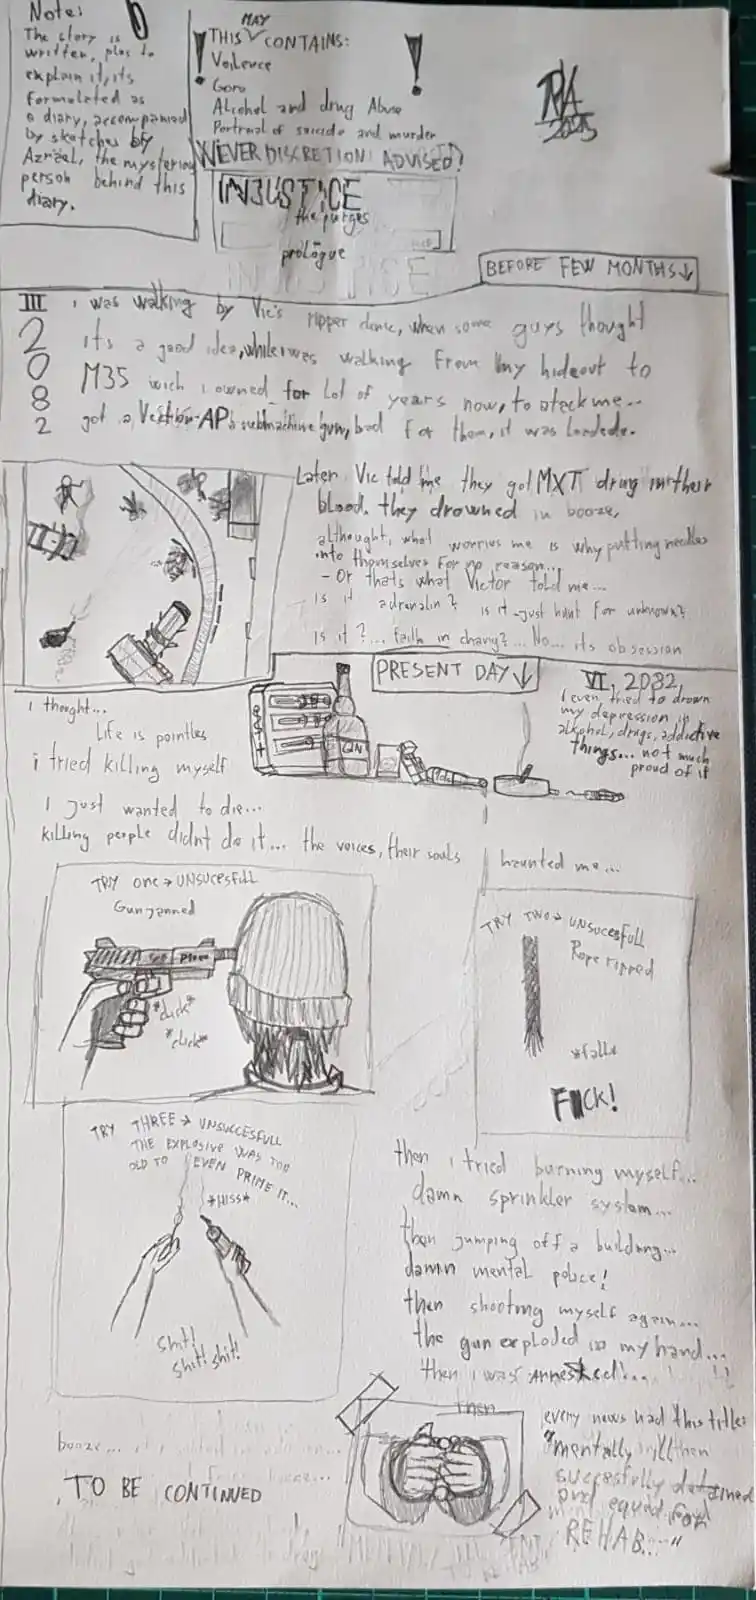 Note:
The story is
written, plus to
explain it, its
formulated as
a diary, accompanied
by sketches by
Azrael, the mysterious
person behind this
diary.
MAY
THIS CONTAINS:
Voilence
Goro
Alcohol and drug Abuse
Portrayal of suicide and murder
WIEVER DISCRETION ADVISED!
2025
INJUSTICE
the purges
prologue
BEFORE FEW MONTHS↓
III
2
0
8
2
i was walking by Vic's ripper clinic, when some guys thought
its a good idea, while i was walking from my hideout to
M35 wich i owned for lot of years now, to atack me...
got a Vection-AP submachine gun, bad for them, it was loadede.
Later Vic told me they got MXT drug in their
blood. they drowned in booze,
althought, what worries me is why putting needles
into themselves for no reason...
- Or thats what Victor told me...
is it adrenalin? is it just hunt for unknown?
is it?... faith in chang?... No... its obsession
PRESENT DAY↓
VI. 2082
i even tried to drown
my depression in
alkohol, drugs, addictive
things... not much
proud of it
i thought...
Life is pointles
i tried killing myself
I just wanted to die...
killing people didnt do it... the voices, their souls haunted me...
TRY one → UNSUCESFULL
Gun jammed
*click*
*click*
TRY TWO → UNSUCESFULL
Rope ripped
*falls
FUCK!
TRY THREE → UNSUCCESFULL
THE EXPLOSIVE WAS TOO
OLD TO EVEN PRIME IT...
*HISS*
Shit!
Shit! Shit!
then i tried burning myself...
damn sprinkler system...
then jumping off a building...
damn mental police!
then shooting myself again...
the gun exploded in my hand...
then i was arrested!...
then
every news had this title:
"mentally ill then
succesfully detained
and
REHAB..."
booze...
TO BE CONTINUED